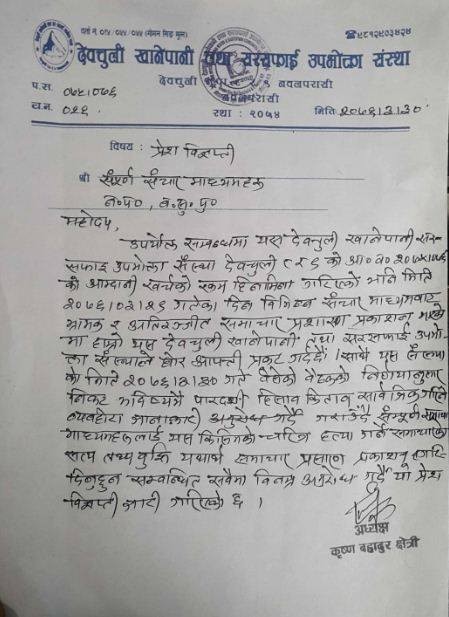 दर्ता नं. ०५४/०५५/०५५
☎९८१२९०३४२४
देवचुली खानेपानी तथा सरसफाई उपभोक्ता संस्था
देवचुली नवलपरासी
स्था : २०५४
प.स. ०७५।०७६
च.न. ०२६
मिति २०७६।३।३०
विषय : प्रेश विज्ञप्ती
श्री संपूर्ण संचार माध्यमहरु
न०प०, व०सु०पु०
महोदय,
उपर्योक्त सम्बन्धमा यस देवचुली खानेपानी सर-
सफाइ उपभोक्ता संस्था देवचुली ८ र ९ को आ०व० २०७५।०७६
को आम्दानी खर्चको रकम हिनामिना गरिएको भनि मिति
२०७६।०३।२९ गतेका दिन विभिन्न संचार माध्यमबाट
भ्रामक र अतिरञ्जीत समाचार प्रशारण प्रकाशन भएको
मा हाम्रो यस देवचुली खानेपानी तथा सरसफाई उपभो-
क्ता संस्थाले घोर आपत्ती प्रकट गर्दछौं। साथै यस संस्था
को मिति २०७६।३।३० गते बसेको बैठकको निर्णयानुसार
निकट भविष्यमै पारदर्शी हिसाव किताव सार्वजनिक गरिने
व्यवहोरा जानाकारी अनुरोध गर्दै गराउँदै संम्पूर्ण संचार
माध्यमहरुलाई यस किसिमको चरित्र हत्या गर्ने समाचारको
सत्य तथ्ययुक्त यथार्थ समाचार प्रसारण प्रकाशन गरि
दिनुहुन सम्बन्धित सवैमा विनम्र अनुरोध गर्दै यो प्रेश
विज्ञप्ती जारी गरिएको छ ।
अध्यक्ष
कृष्ण बहादुर क्षेत्री